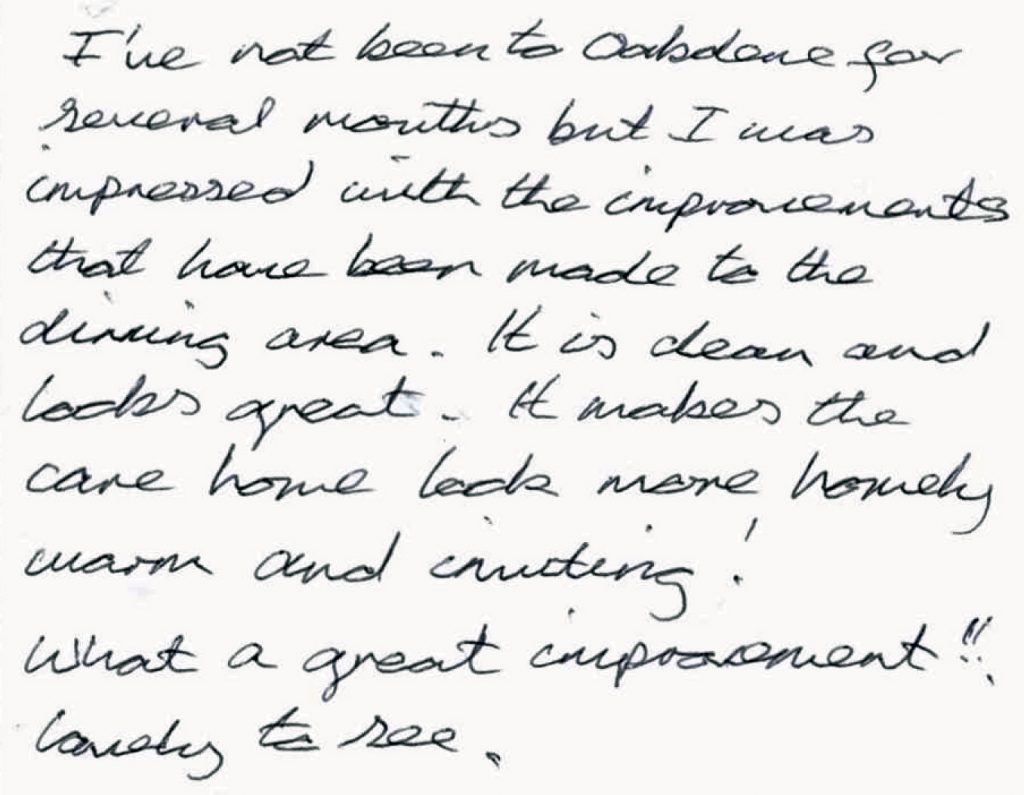 I've not been to Oaksdene for
several months but I was
impressed with the improvements
that have been made to the
dining area. It is clean and
looks great. It makes the
care home look more homely
warm and inviting!
What a great improvement!!
Lovely to see.